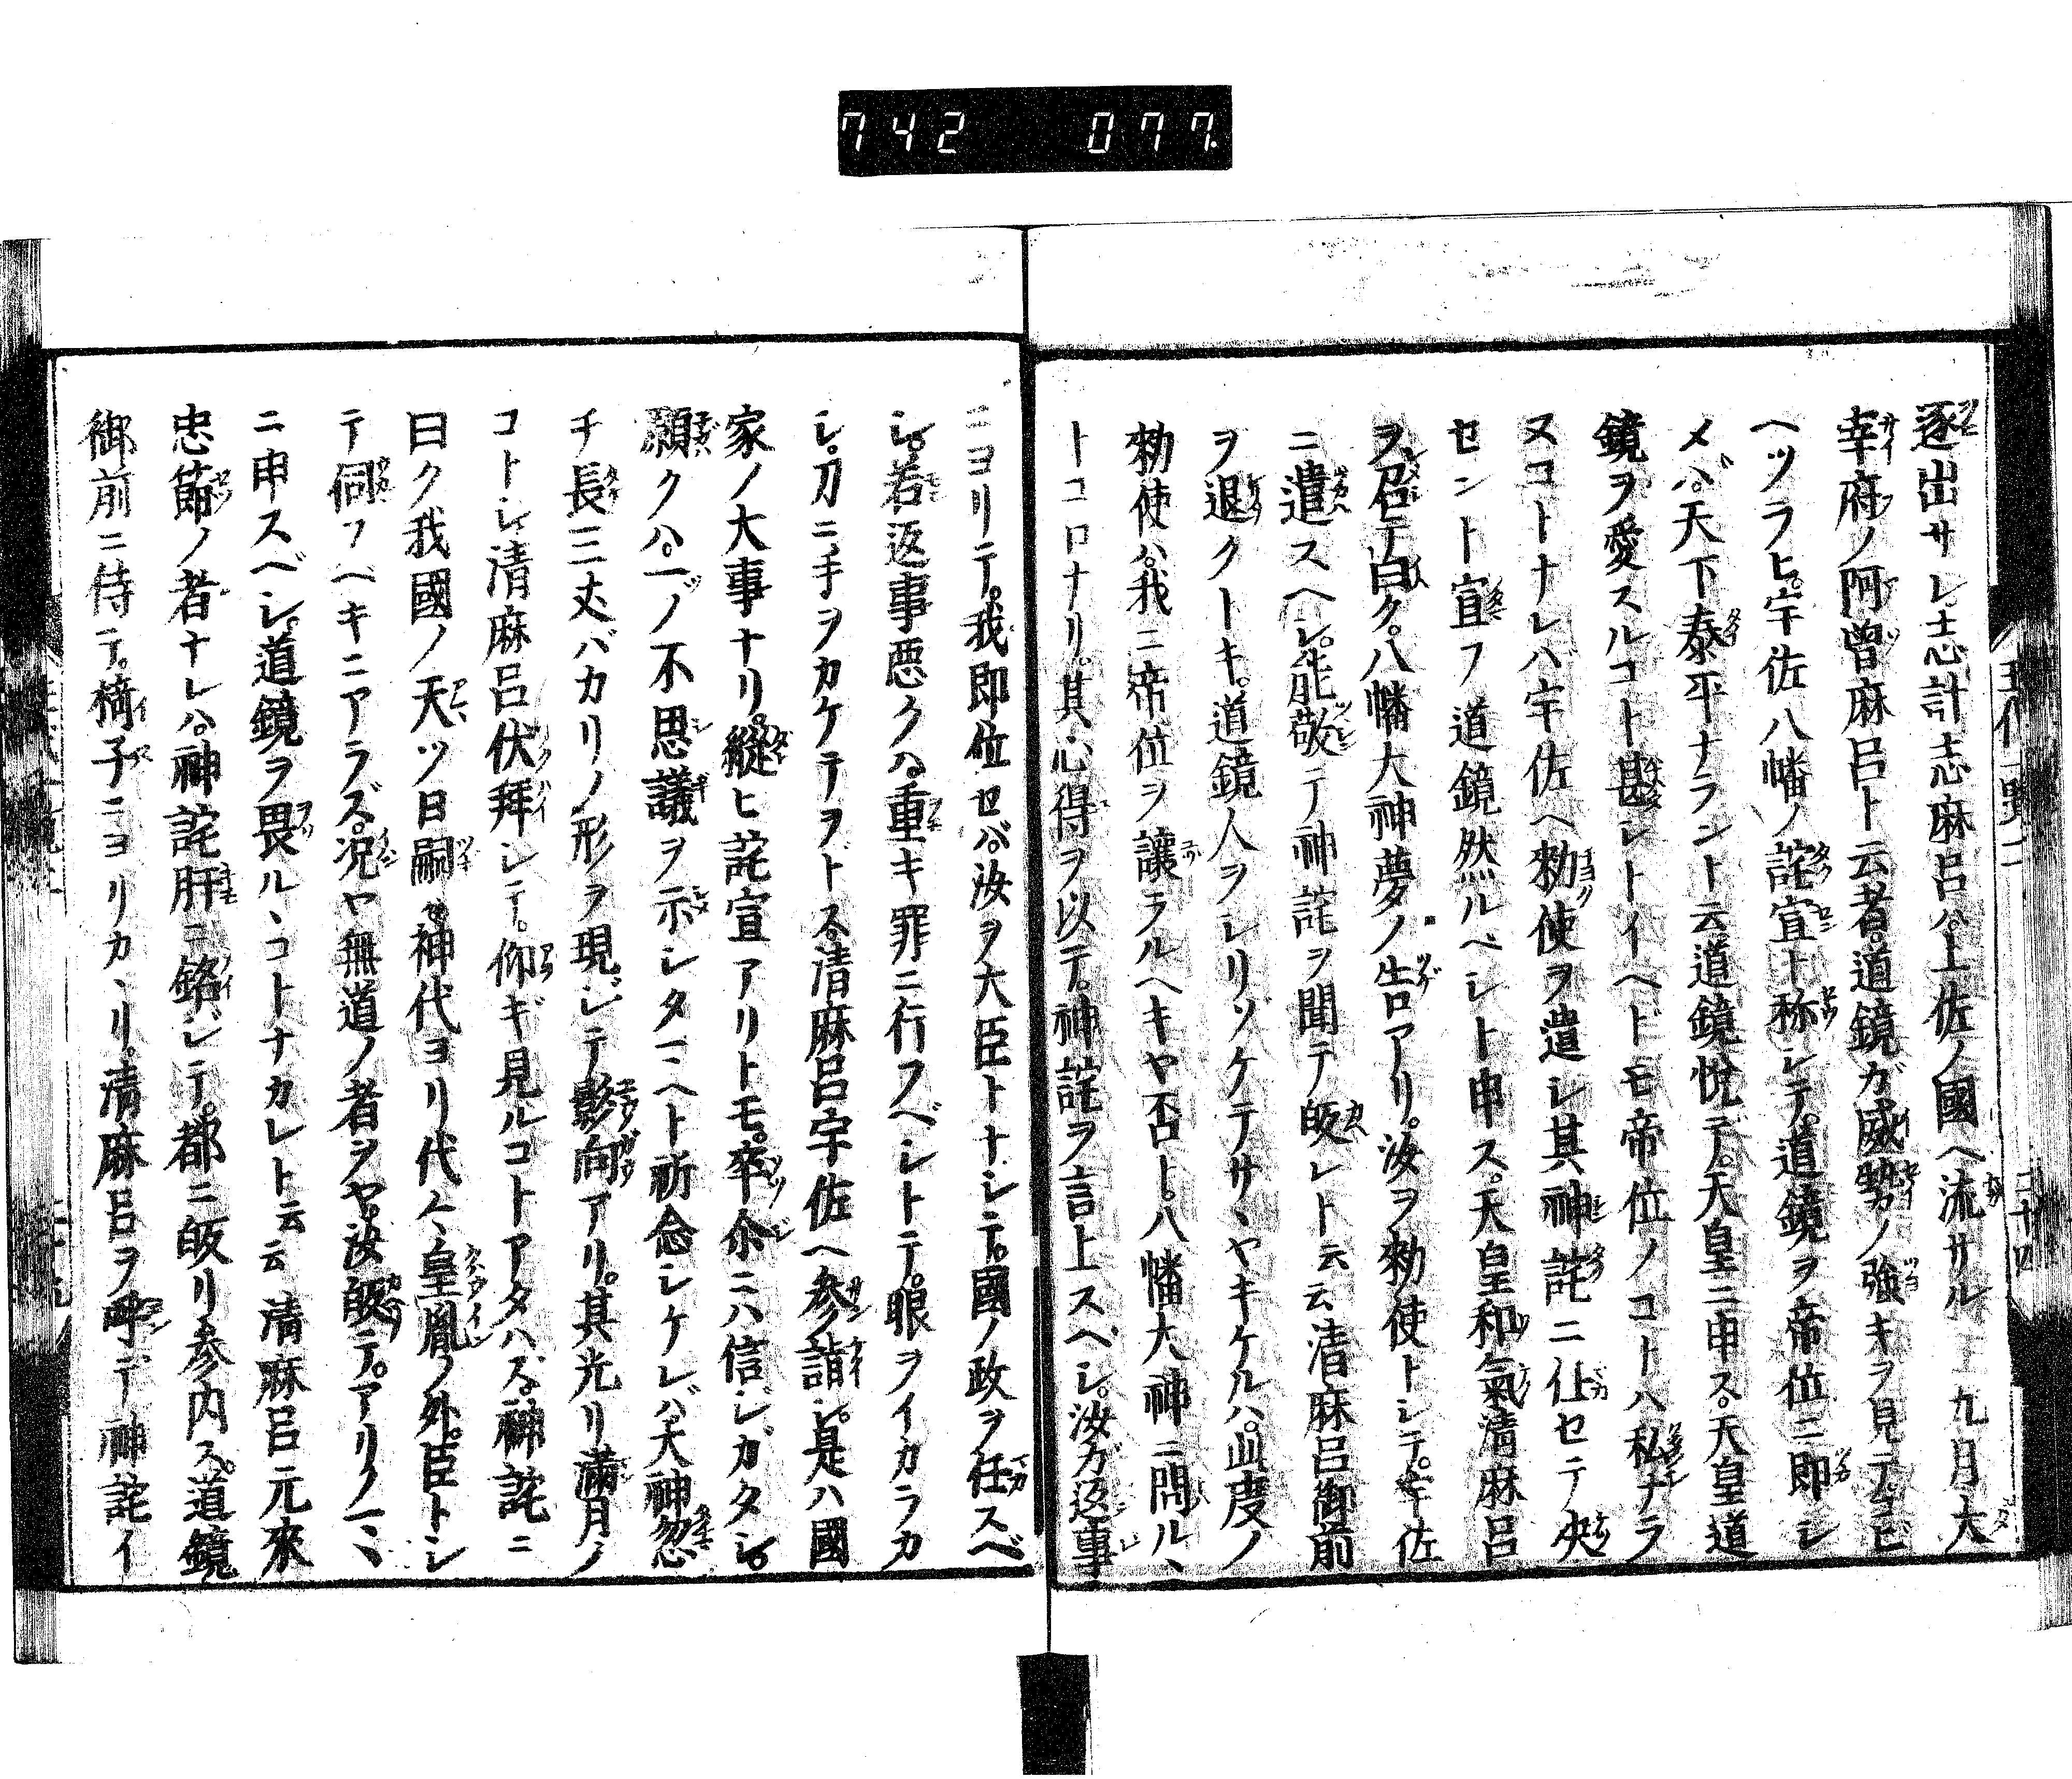 742 077
逐出サレ志計志麻呂ハ。土佐ノ國ヘ流サル 九月大
宰府ノ阿曽麻呂ト云者。道鏡ガ威勢ノ強キヲ見テ。コビ
ヘツラヒ。宇佐八幡ノ詫宣ト称シテ。道鏡ヲ帝位ニ即シ
メバ。天下泰平ナラント云道鏡悦デ。天皇ニ申ス。天皇道
鏡ヲ愛スルコト甚レトイヘドモ帝位ノコトハ私ナラ
ヌコトナレバ宇佐ヘ勅使ヲ遣レ其神詫ニ任セテ决
セント宣フ道鏡然ルベレト申ス。天皇和氣清麻呂
ヲ召テ白ク。八幡大神夢ノ告アリ。汝ヲ勅使トシテ。宇佐
ニ遣スヘレ。能敬テ神詫ヲ聞テ皈レト云云清麻呂御前
ヲ退クトキ。道鏡人ヲレリゾケテサヽヤキケルハ。此度ノ
勅使ハ。我ニ帝位ヲ讓ラルヘキヤ否ト。八幡大神ニ問ルヽ
トコロナリ。其心得ヲ以テ。神詫ヲ言上スベシ。汝ガ返事
ニヨリテ。我即位セバ。汝ヲ大臣トナシテ。國ノ政ヲ任スベ
シ。若返事悪クハ。重キ罪ニ行フベシトテ。眼ヲイカラカ
シ。刀ニ手ヲカケテヲトス。清麻呂宇佐ヘ参詣シ。是ハ國
家ノ大事ナリ。縦ヒ詫宣アリトモ。卒尓ニハ信ジガタシ。
願クハ。一ツノ不思議ヲ示シタマヘト祈念シケレバ大神忽
チ長三丈バカリノ形ヲ現ジテ影向アリ。其光リ滿月ノ
コトレ清麻呂伏拜シテ。仰ギ見ルコトアタハズ。神詫ニ
曰ク我國ノ天ツ日嗣ハ神代ヨリ代々皇胤ノ外。臣トシ
テ伺フベキニアラズ。况ヤ無道ノ者ヲヤ。汝皈テ。アリノマヽ
ニ申スベシ。道鏡ヲ畏ルヽコトナカレト云云 清麻呂元來
忠節ノ者ナレハ。神詫肝ニ銘シテ。都ニ皈リ参内ス。道鏡
御前ニ侍テ。椅子ニヨリカヽリ。清麻呂ヲ呼デ神詫イ